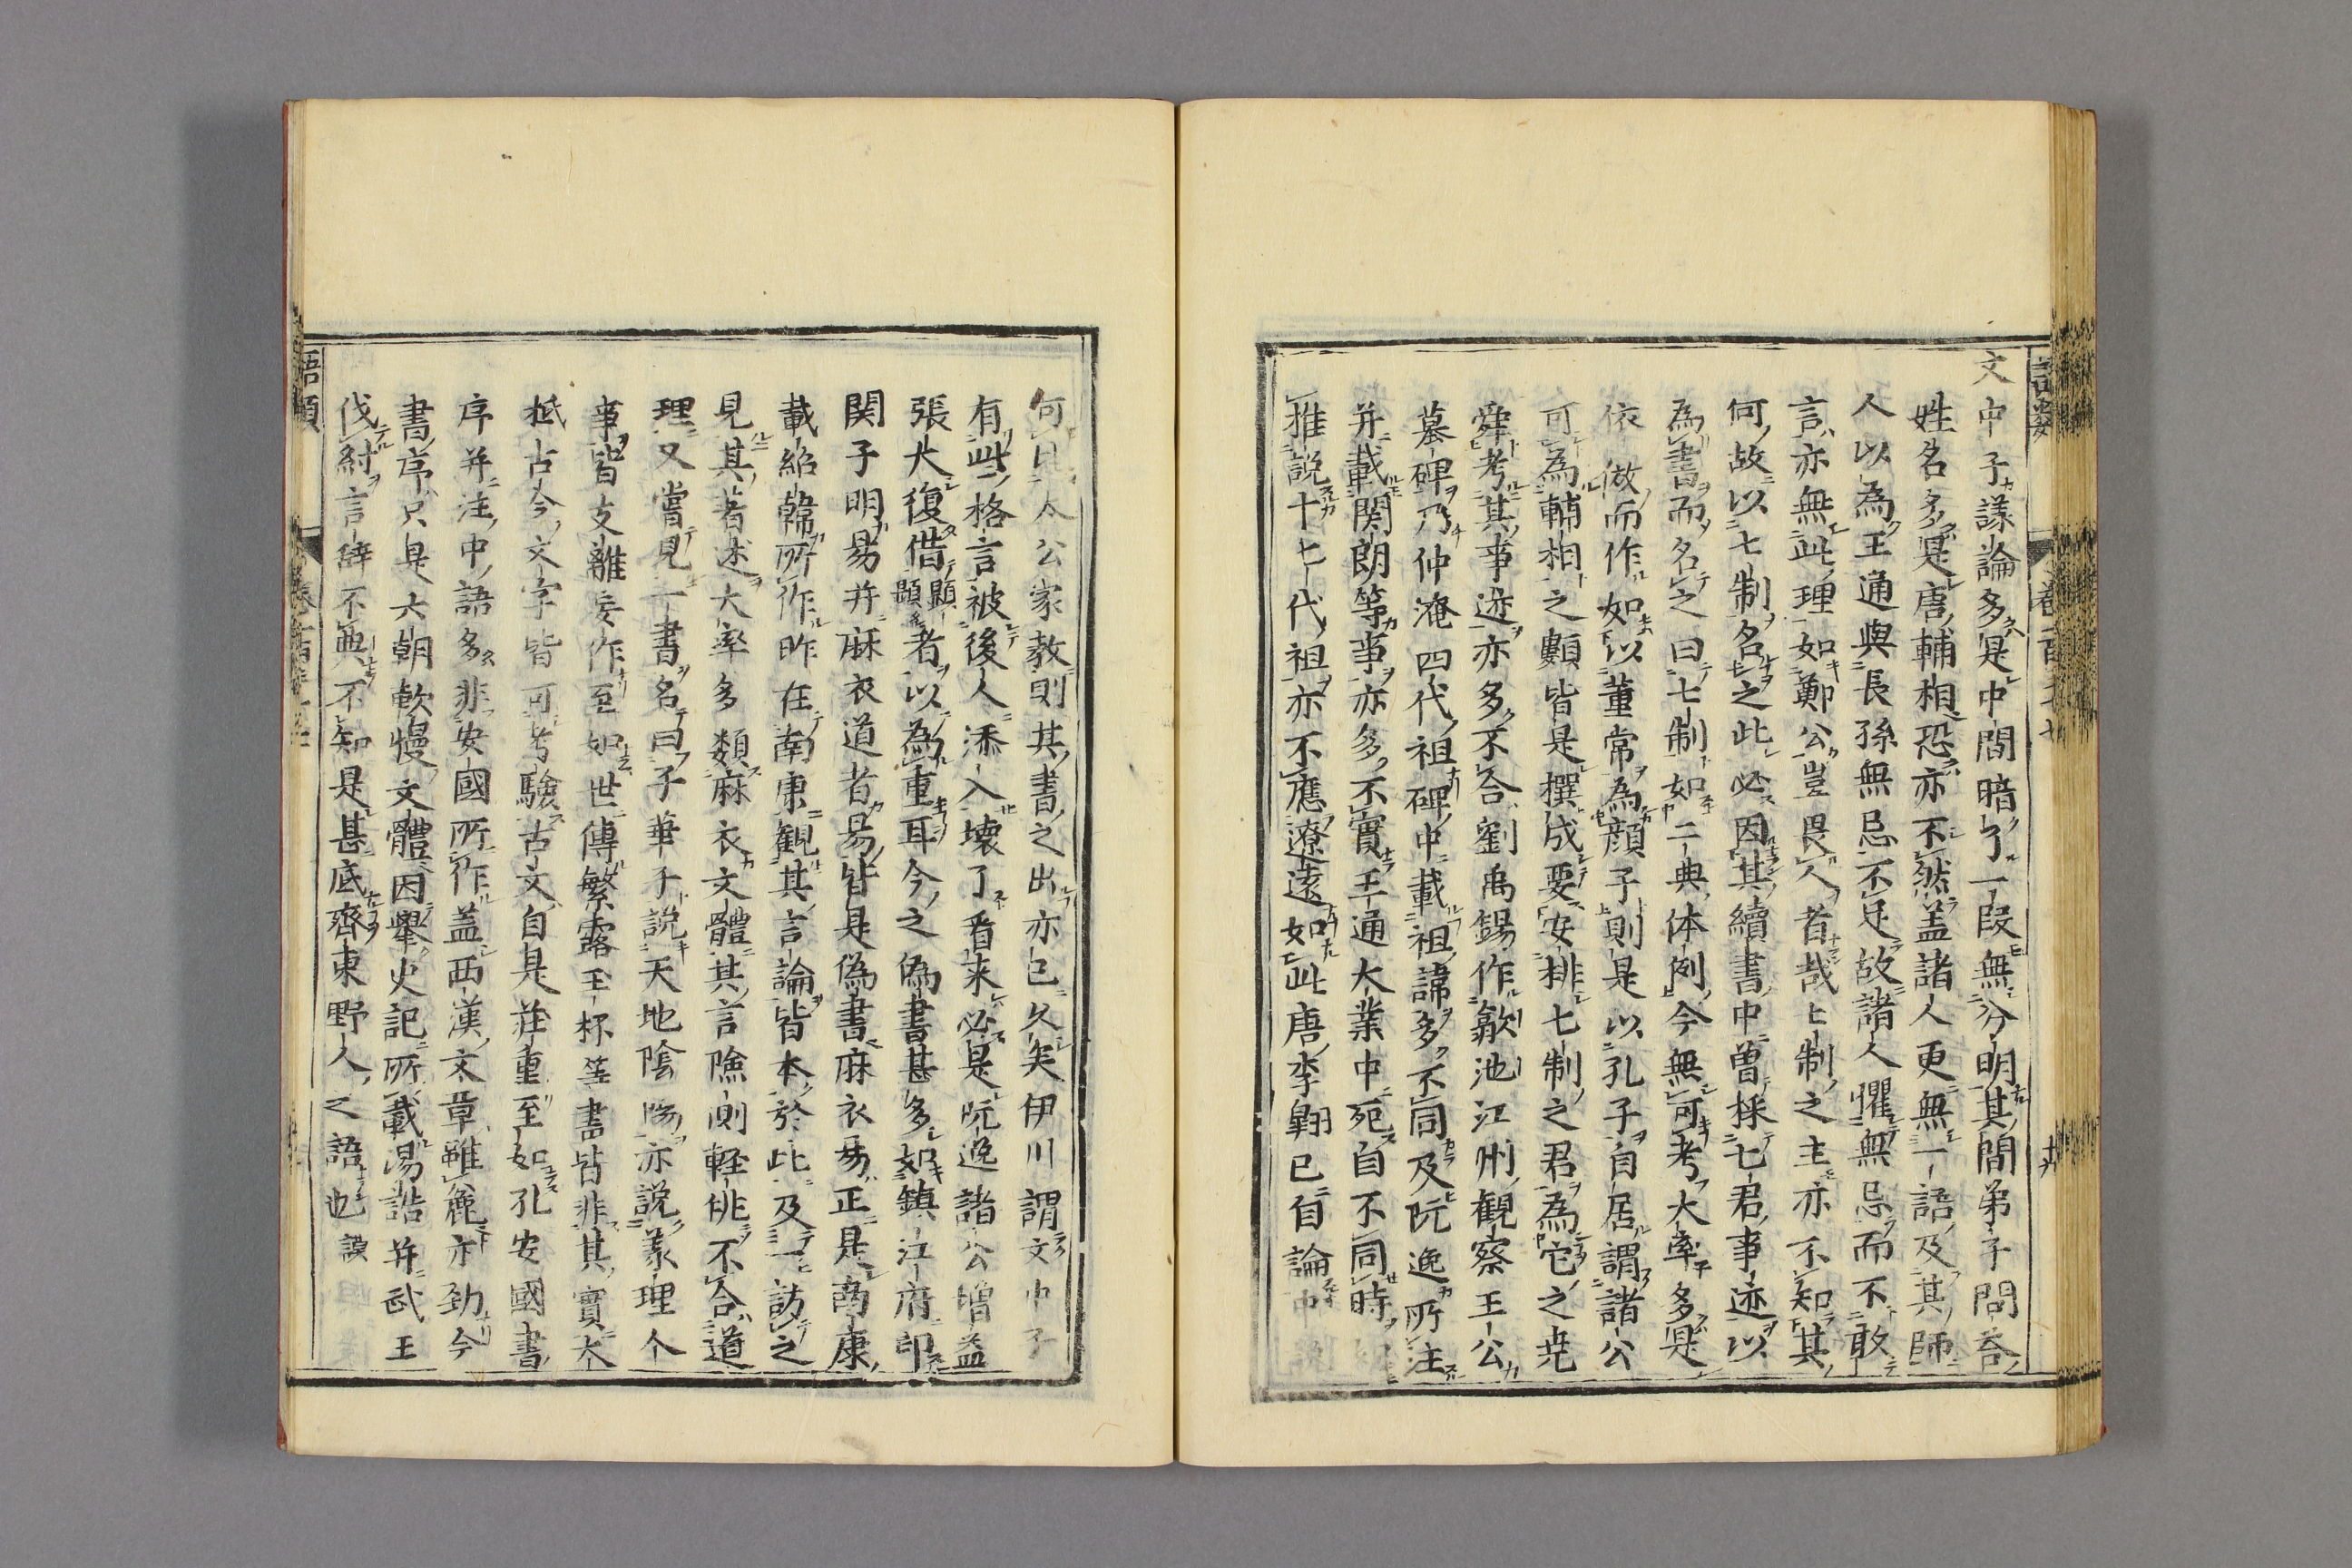 文中子議論多是中間暗了一段無分明其間弟子問荅
姓名多是唐輔相恐亦不然盖諸人更無一語及其師
人以為王通與長孫無忌不足故諸人懼無忌而不敢
言亦無此理如鄭公豈畏人者哉七制之主亦不知其
何故以七制名之此必因其續書中曽採七君事迹以
為書而名之曰七制如二典体例今無可考大率多是
依倣而作如以董常為顔子則是以孔子自居謂諸公
可為輔相之類皆是撰成要安排七制之君為它之尭
舜考其事迹亦多不合劉禹錫作歙池江州觀察王公
墓碑乃仲淹四代祖碑中載祖諱多不同及阮逸所注
并載関朗等事亦多不實王通大業中死自不同時
推說十七代祖亦不應遼遠如此唐李翺已自論中
太公家教則其書之出亦已久矣伊川謂文中子
有些格言被後人添入壊了看来必是阮逸諸公增益
張大復借顯顯者以為重耳今之偽書甚多如鎮江府印
関子明易并麻衣道者易皆是偽書麻衣易正是南康
載紹韓所作昨在南康觀其言論皆本於此及一訪之
見其著述大率多類麻衣文體其言險側軽佻不合道
理又嘗見一書名曰子華子說天地隂陽亦說義理人
事皆支離妄作至如世傳繁露玉杯等書皆非其實大
抵古今文字皆可考驗古文自是莊重至如孔安國書
序并注中語多非安國所作盖西漢文章雖麄亦勁今
書序只是六朝軟慢文體因舉史記所載湯誥并武王
伐紂言辭不典不知是甚底齊東野人之語也謨